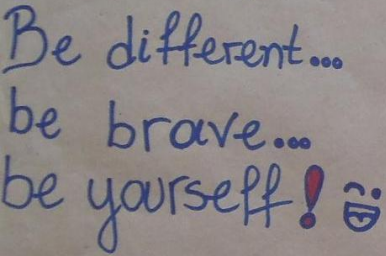 Be different...
be brave...
be yourself!